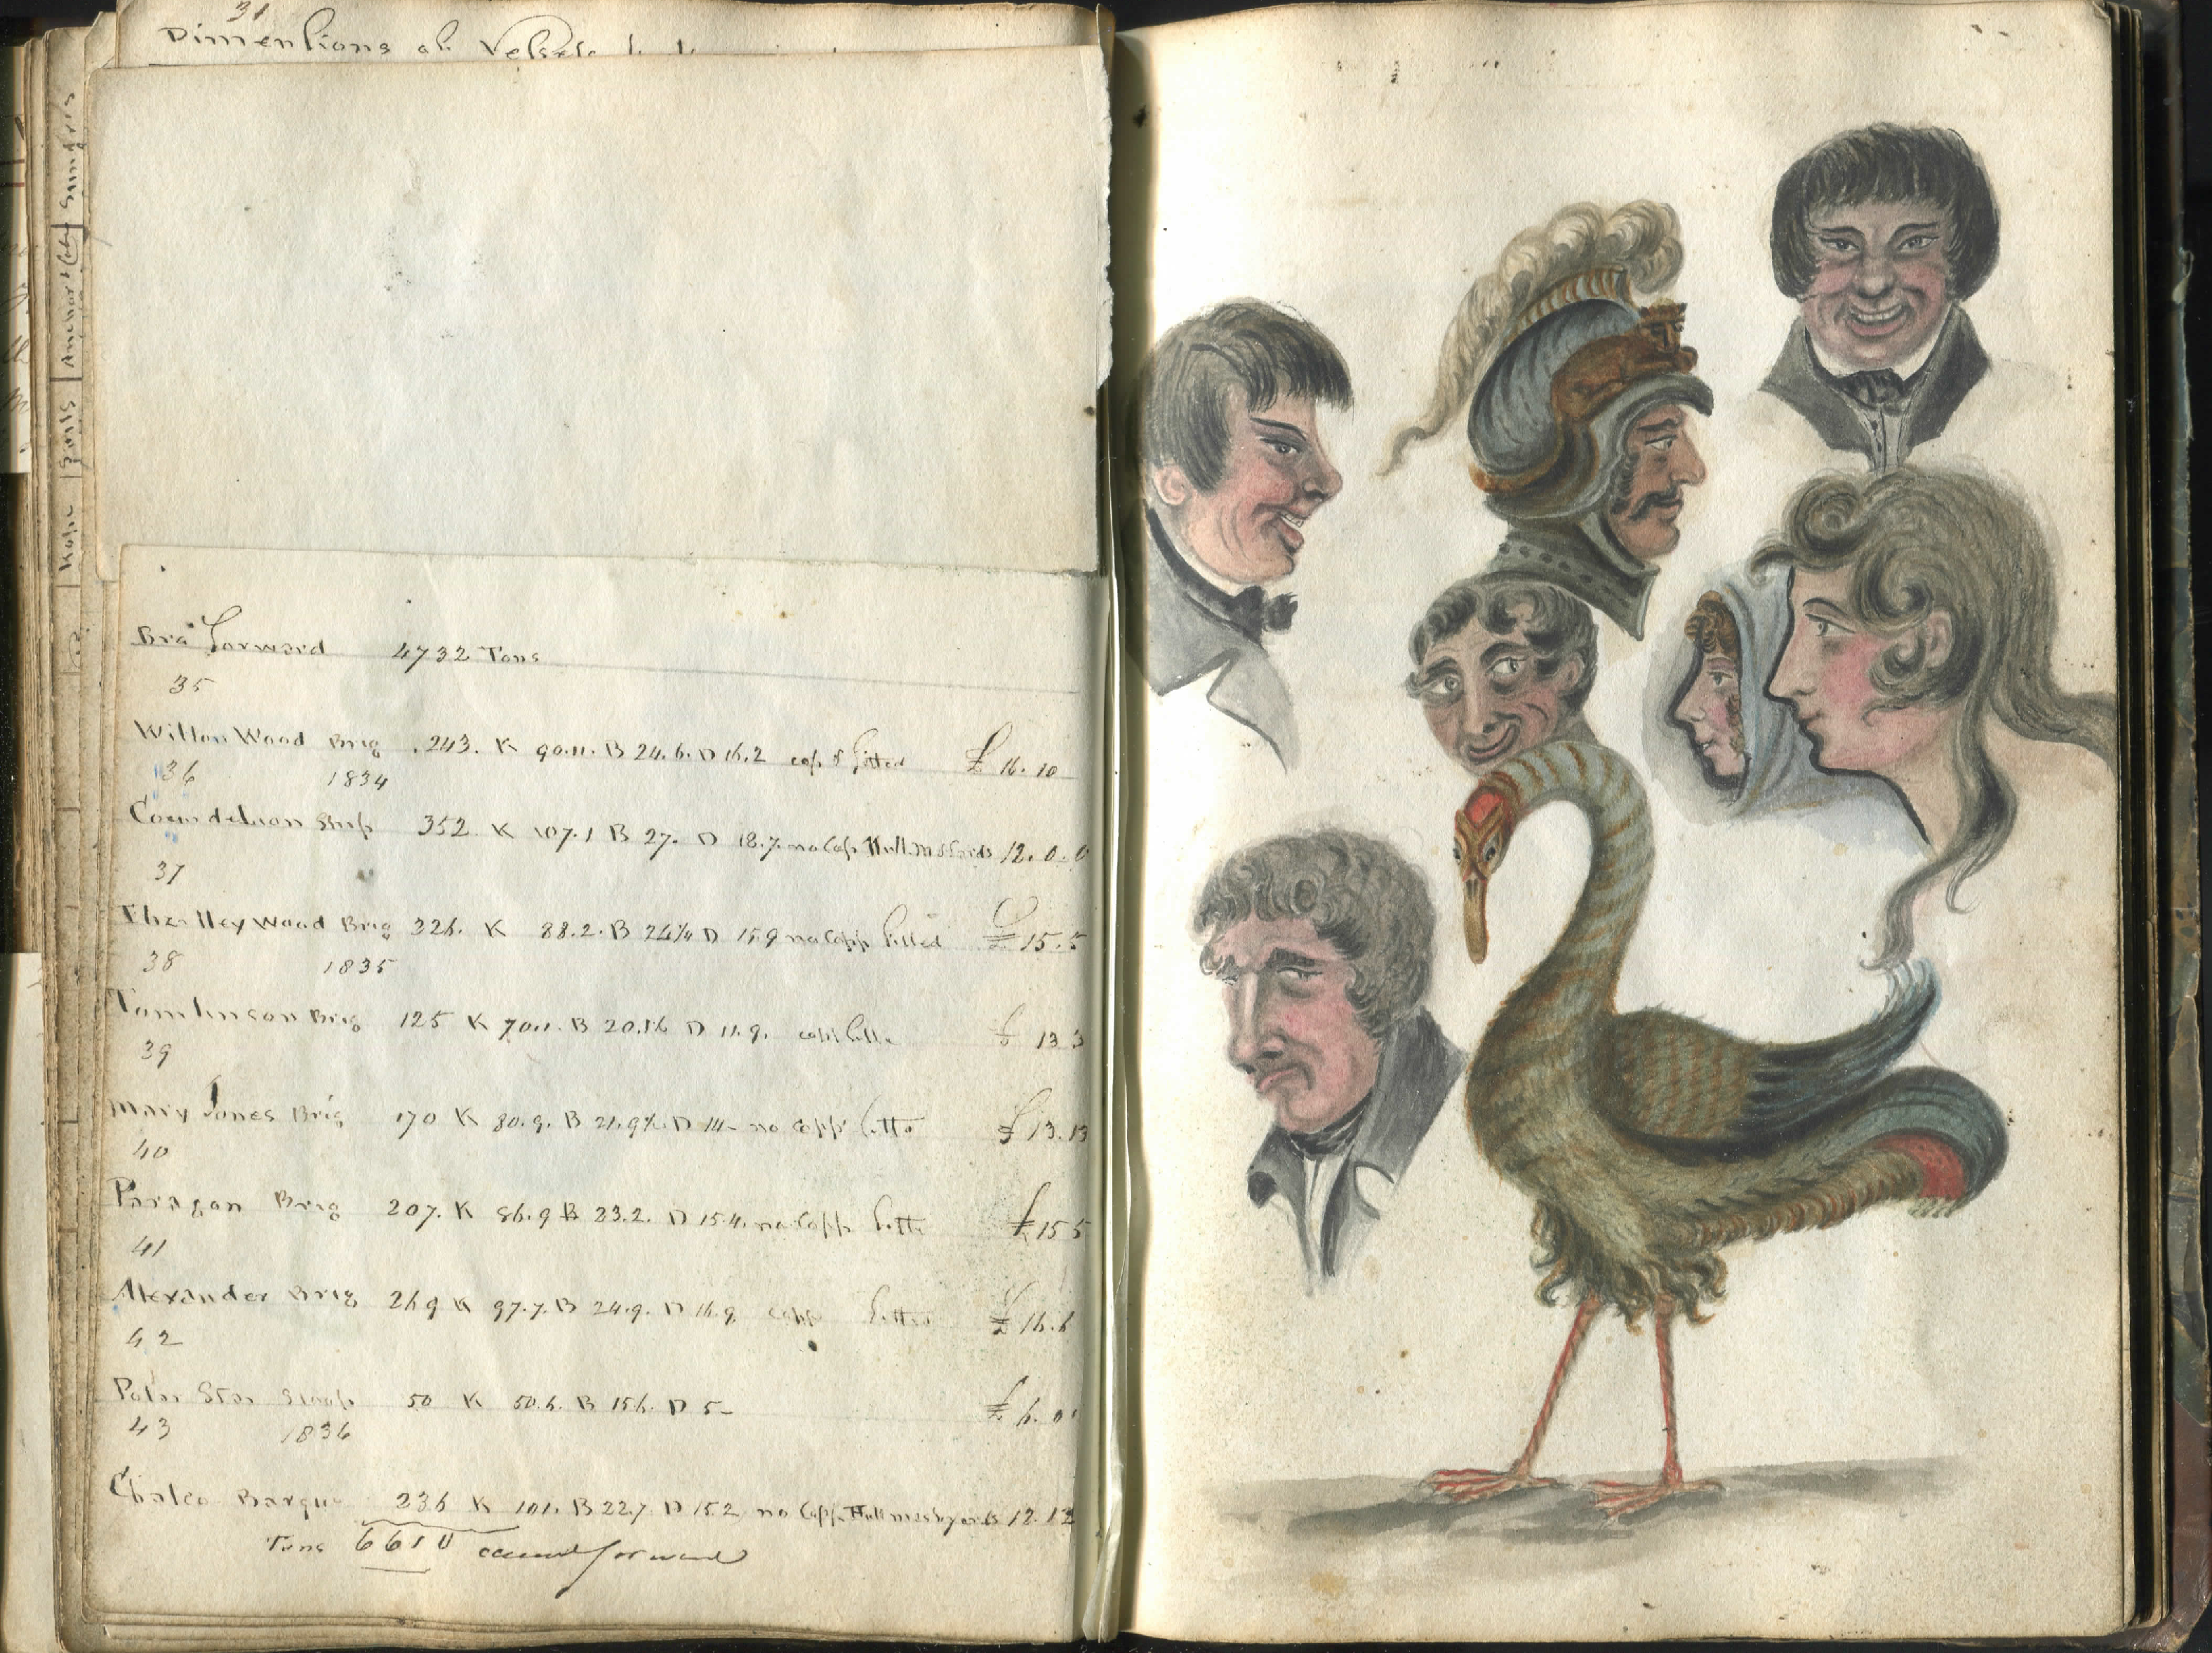 31
Dimensions of Vessels
Bro Forward 4732 Tons
35
Wilton Wood Brig 243. K 90.11. B 24.6. D 16.2 cop & fitted £ 16.10
36 1834
Ship 352 K 107.1 B 27. D 18.7. no Cop Hull 12.0.0
37
Wood Brig 326. K 88.2. B 24¼ D 15.9 no Copp fitted £ 15.5
38 1835
Tomlinson Brig 125 K 70.11. B D 11.9. £ 13 3
39
Mary Jones Brig 170 K 80.9. B D 14 no Copp fitto £ 13.13
40
Paragon Brig 207. K 86.9 B 23.2. D 15.4. no Copp fitto £ 15 5
41
Alexander Brig 269 K 97.7. B 24.9. D 16.9. copp fitted £ 16.6
42
Polar Star Sloop 50 K 50.6. B 15.6. D 5- £ 6.0
43 1836
Chalco Barque 236 K 101. B 22.7 D 15.2 no Copp Hull 12.12
Tons 6610 forward
Rope Sails Anchor & Cable Sundries